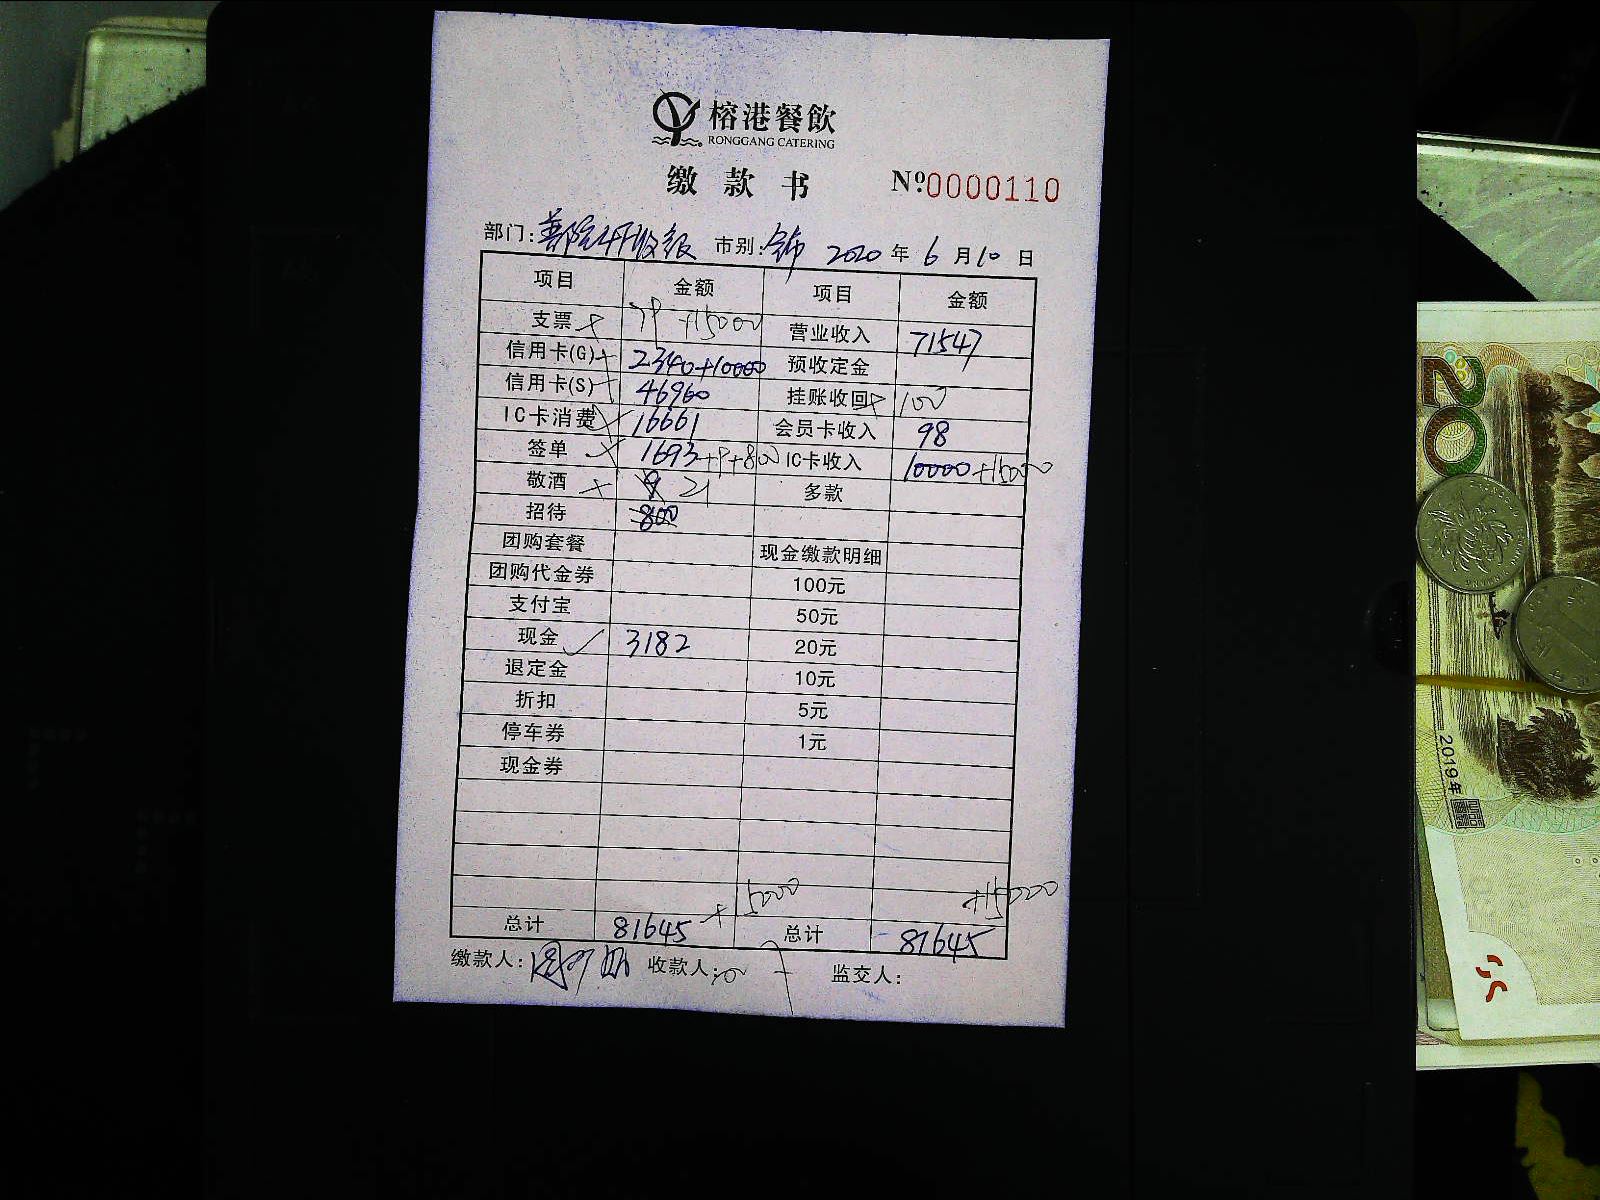 榕港餐飲
RONGGANG CATERING
缴款书 Nº0000110
部门: 市别: 2020 年 6 月 10 日
项目 金额 项目 金额
支票 +15000 营业收入 71547
信用卡(G) 2340+10000 预收定金
信用卡(S) 46960 挂账收回 100
IC卡消费 16661 会员卡收入 98
签单 1693+9+800 IC卡收入 10000+15000
敬酒 9 21 多款
招待 800
团购套餐 现金缴款明细
团购代金券 100元
支付宝 50元
现金 ✓ 3182 20元
退定金 10元
折扣 5元
停车券 1元
现金券
+15000 +15000
总计 81645 总计 81645
缴款人: 收款人: 监交人:
20
2019年